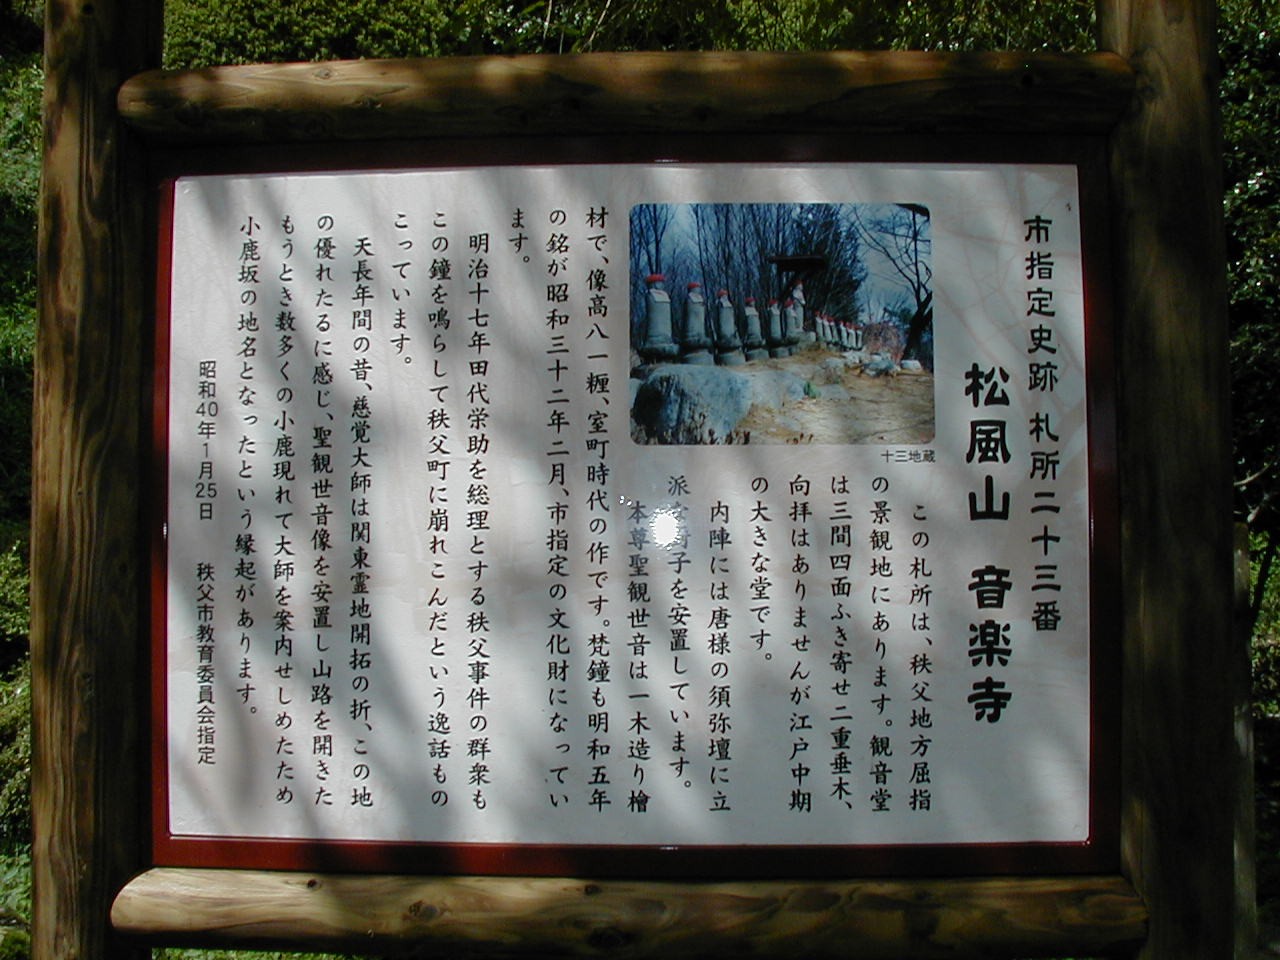 市指定史跡 札所二十三番
松風山 音楽寺
十三地蔵
この札所は、秩父地方屈指
の景観地にあります。観音堂
は三間四面ふき寄せ二重垂木、
向拝はありませんが江戸中期
の大きな堂です。
内陣には唐様の須弥壇に立
派 子を安置しています。
本尊聖観世音は一木造り檜
材で、像高八一糎、室町時代の作です。梵鐘も明和五年
の銘が昭和三十二年二月、市指定の文化財になってい
ます。
明治十七年田代栄助を総理とする秩父事件の群衆も
この鐘を鳴らして秩父町に崩れこんだという逸話もの
こっています。
天長年間の昔、慈覚大師は関東霊地開拓の折、この地
の優れたるに感じ、聖観世音像を安置し山路を開きた
もうとき数多くの小鹿現れて大師を案内せしめたため
小鹿坂の地名となったという縁起があります。
昭和40年1月25日 秩父市教育委員会指定